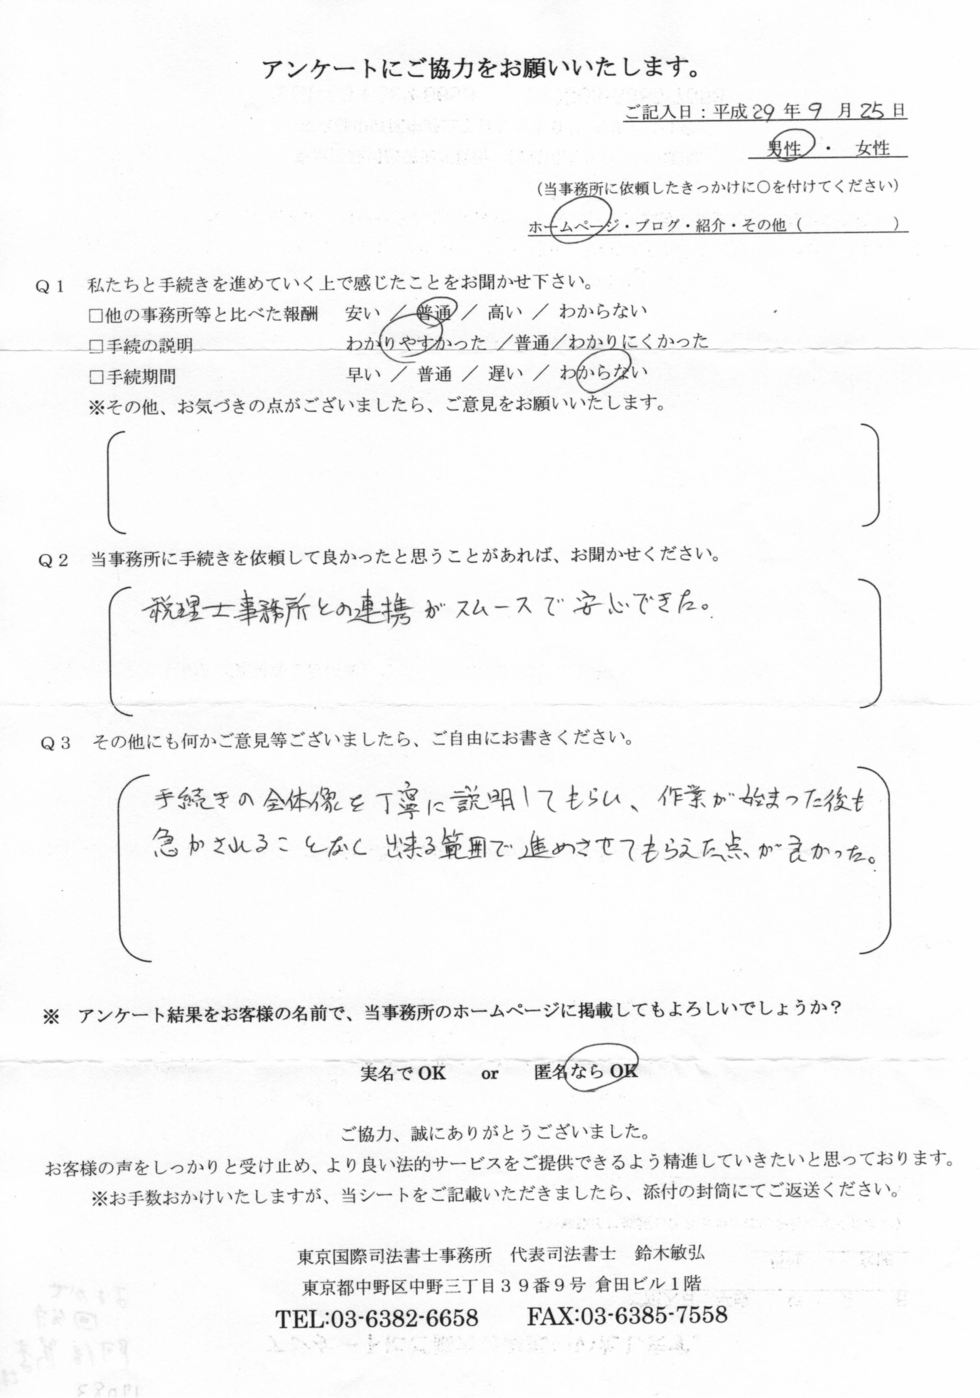 アンケートにご協力をお願いいたします。
ご記入日：平成29年9月25日
男性 ・ 女性
（当事務所に依頼したきっかけに○を付けてください）
ホームページ・ブログ・紹介・その他（　　　　　）
Ｑ１　私たちと手続きを進めていく上で感じたことをお聞かせ下さい。
□他の事務所等と比べた報酬　安い ／ 普通 ／ 高い ／ わからない
□手続の説明　わかりやすかった ／普通／わかりにくかった
□手続期間　早い ／ 普通 ／ 遅い ／ わからない
※その他、お気づきの点がございましたら、ご意見をお願いいたします。
Ｑ２　当事務所に手続きを依頼して良かったと思うことがあれば、お聞かせください。
税理士事務所との連携がスムースで安心できた。
Ｑ３　その他にも何かご意見等ございましたら、ご自由にお書きください。
手続きの全体像を丁寧に説明してもらい、作業が始まった後も
急かされることなく出来る範囲で進めさせてもらえた点が良かった。
※　アンケート結果をお客様の名前で、当事務所のホームページに掲載してもよろしいでしょうか？
実名でOK　or　匿名ならOK
ご協力、誠にありがとうございました。
お客様の声をしっかりと受け止め、より良い法的サービスをご提供できるよう精進していきたいと思っております。
※お手数おかけいたしますが、当シートをご記載いただきましたら、添付の封筒にてご返送ください。
東京国際司法書士事務所　代表司法書士　鈴木敏弘
東京都中野区中野三丁目３９番９号 倉田ビル１階
TEL:03-6382-6658　FAX:03-6385-7558